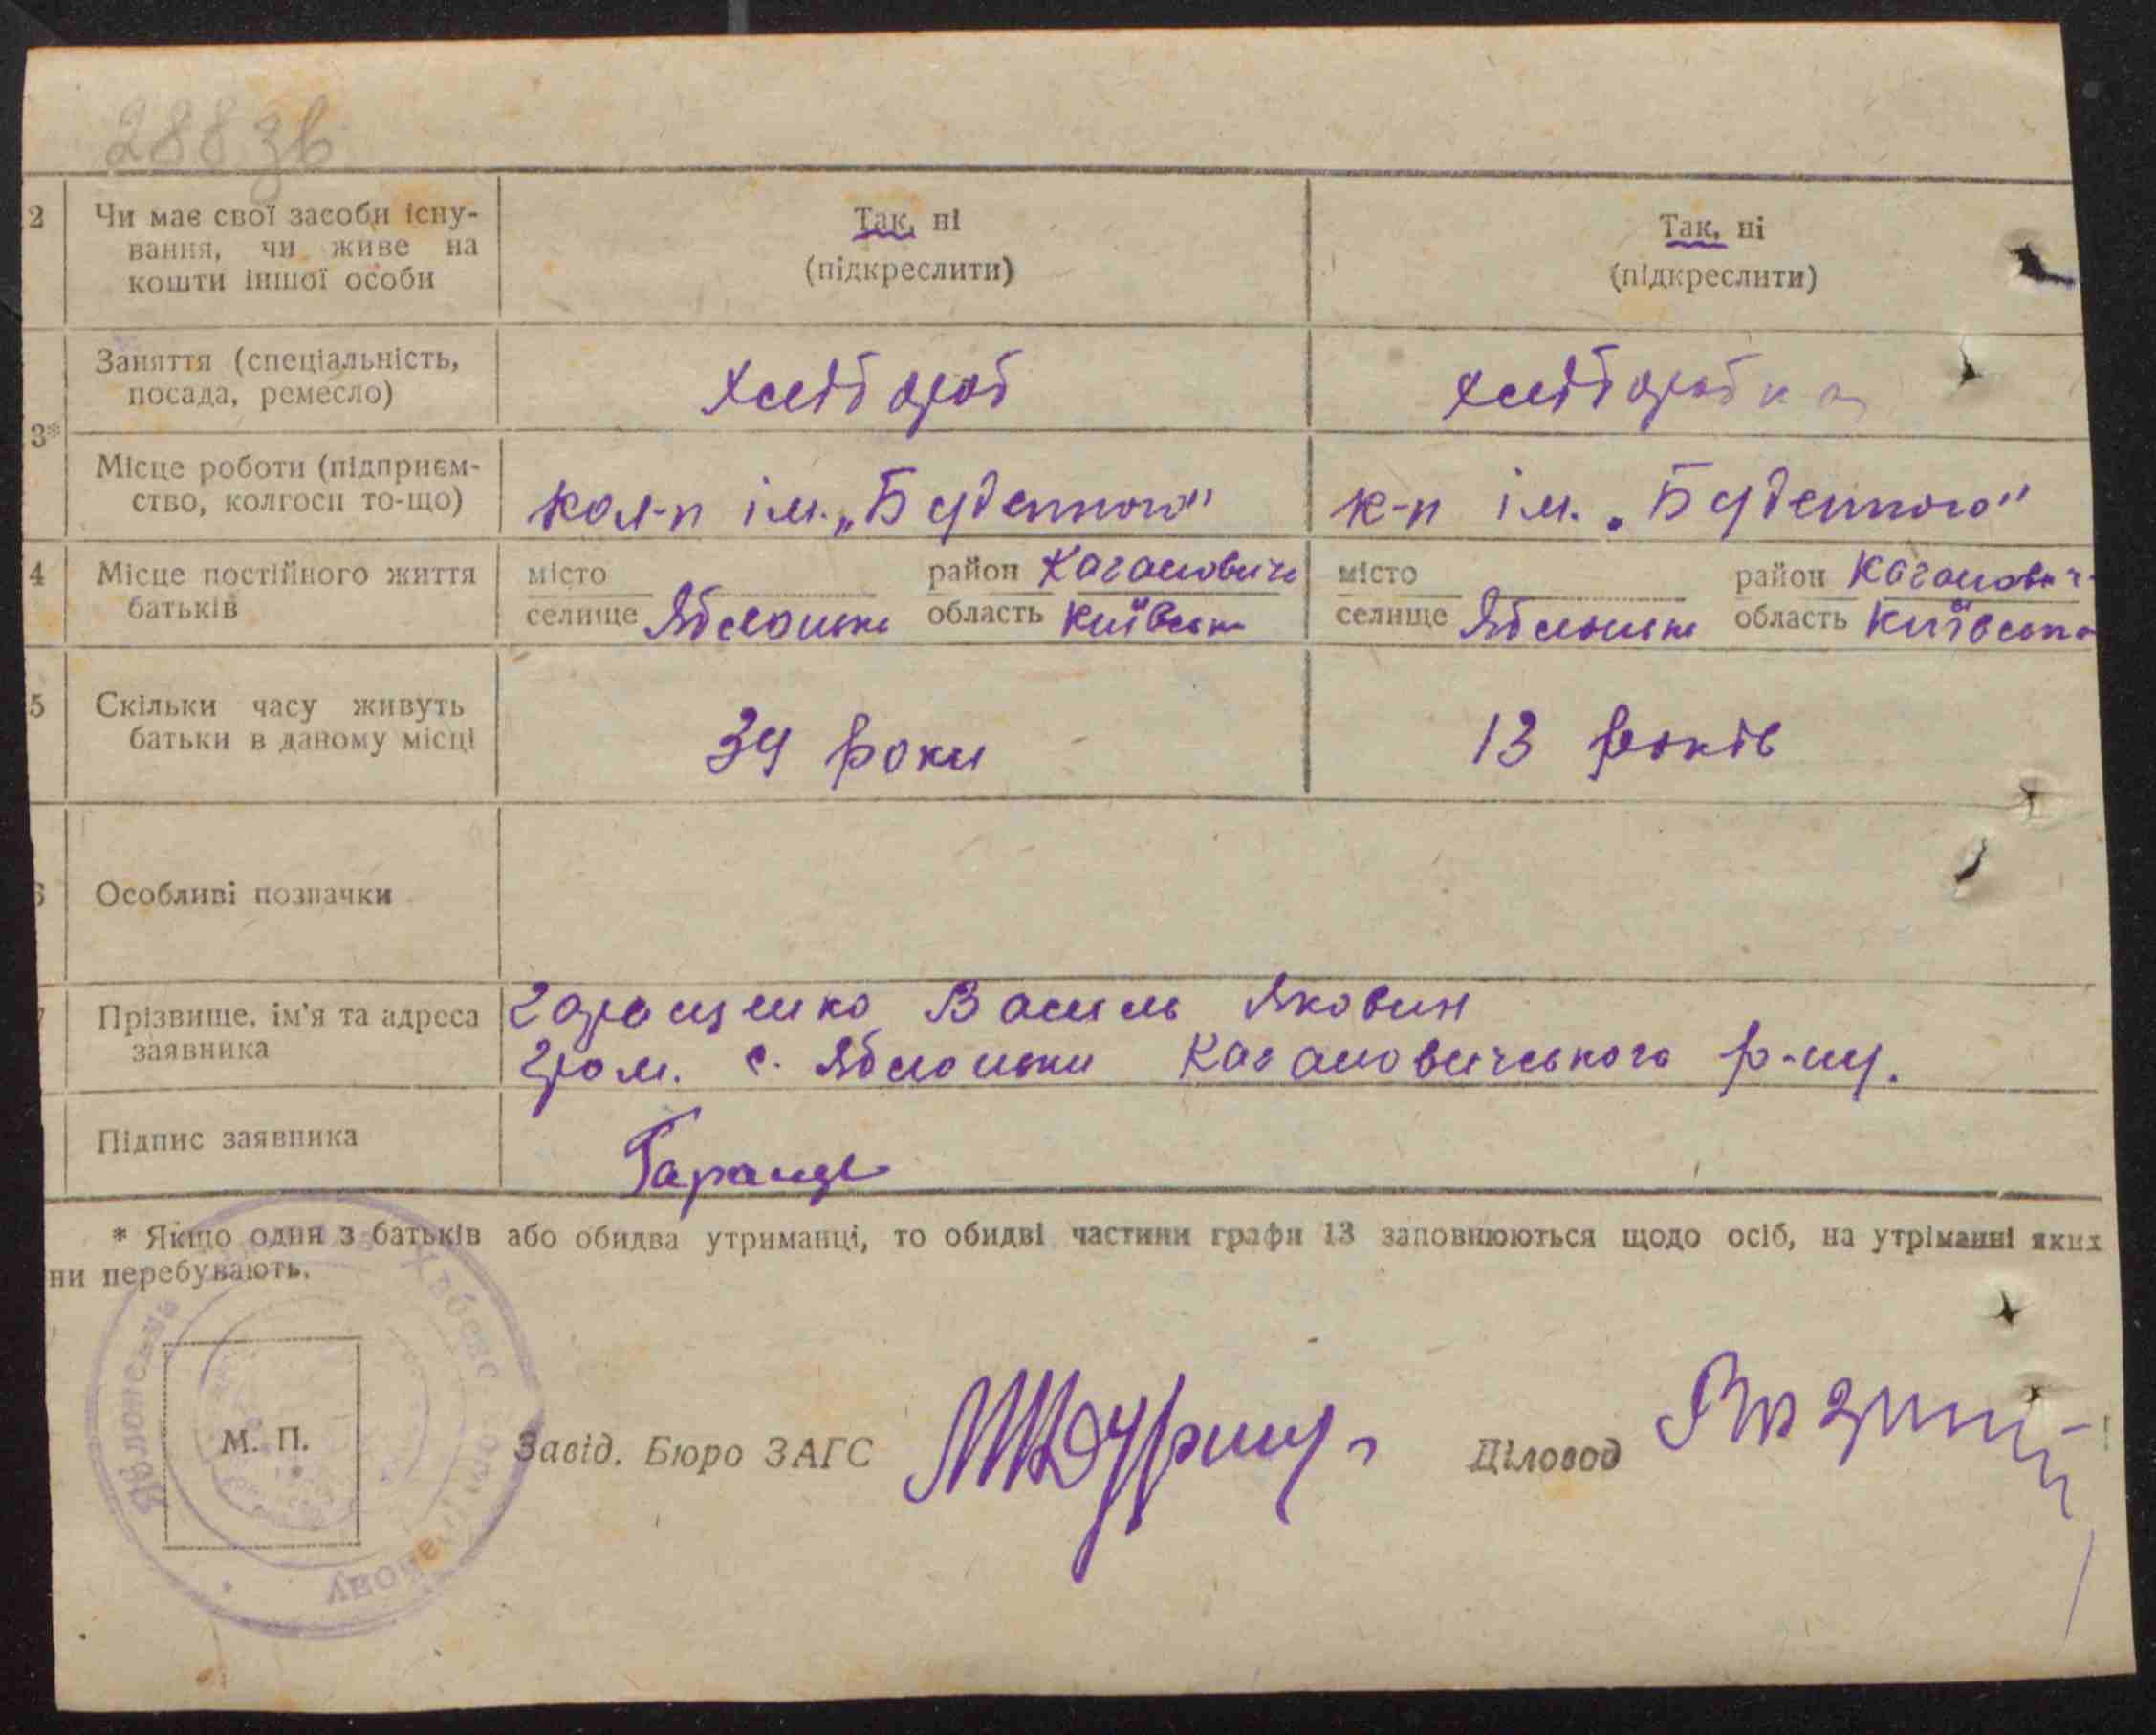 288зв
2 Чи має свої засоби існу-
вання, чи живе на
кошти іншої особи
Так, ні
(підкреслити)
Так, ні
(підкреслити)
3*
Заняття (спеціальність,
посада, ремесло)
хлібороб
хліборобка
Місце роботи (підприєм-
ство, колгосп то-що)
кол-п ім. „Буденного"
к-п ім. „Буденного"
4 Місце постійного життя
батьків
місто
селище Яблонька
район Кагановичі
область Київськ
місто
селище Яблонька
район Каганович
область Київська
5 Скільки часу живуть
батьки в даному місці
34 роки
13 років
Особливі позначки
Прізвище, ім'я та адреса
заявника
Гаращенко Василь Якович
гром. с. Яблоньки Кагановичського р-ну.
Підпис заявника
Гараще
* Якщо один з батьків або обидва утриманці, то обидві частини графи 13 заповнюються щодо осіб, на утріманні яких
ни перебувають.
Яблонська
М. П.
Завід. Бюро ЗАГС
Діловод